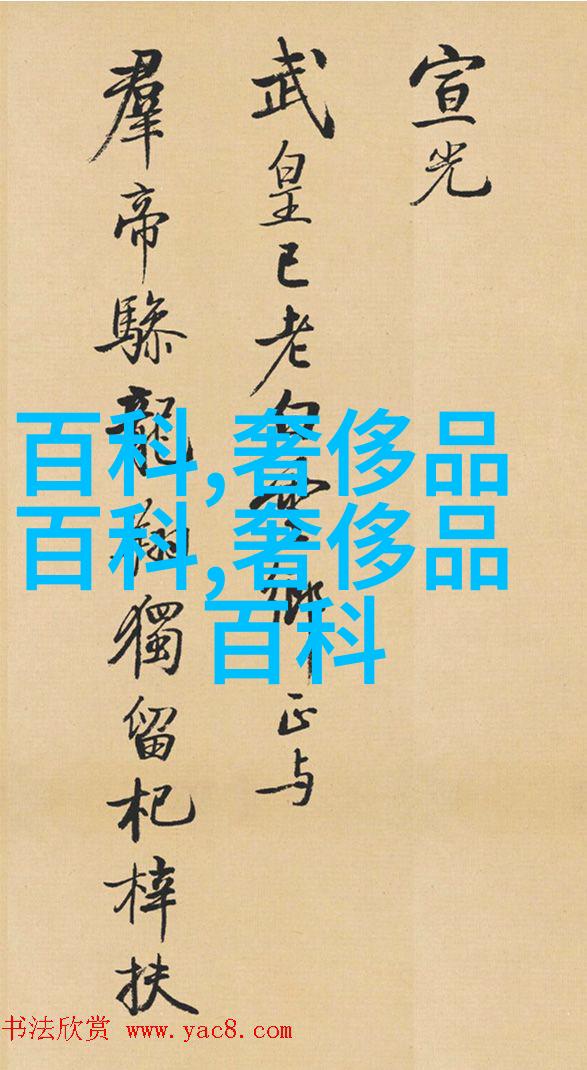 宣光
武皇已老白雲鄉正与
羣帝驂龍翔獨留杞梓扶
百科,奢侈品
百科,奢侈品
百科
书法欣赏 www.yac8.com